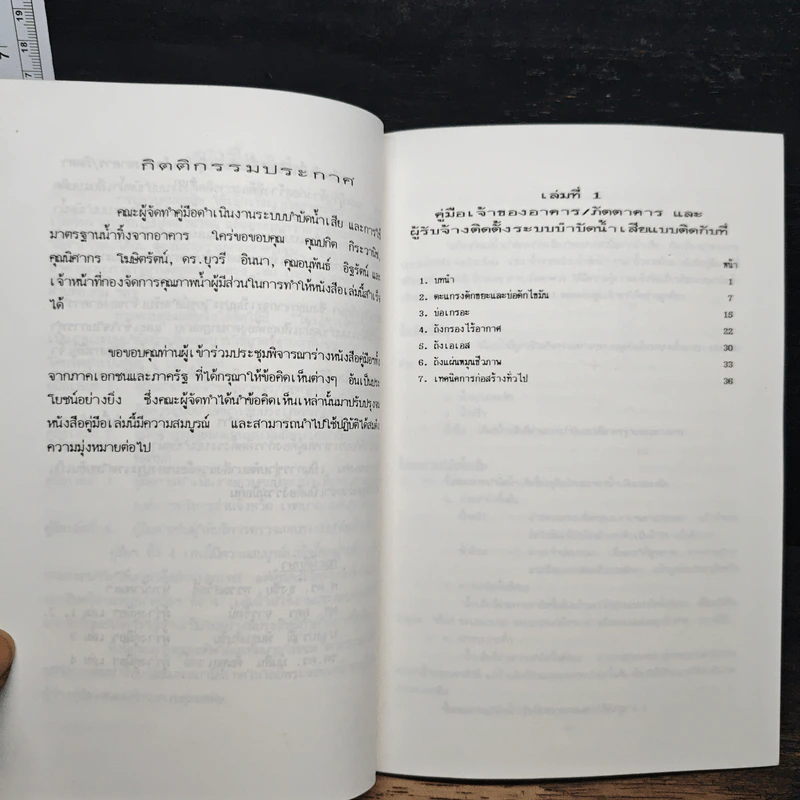 กิตติกรรมประกาศ
คณะผู้จัดทำคู่มือดำเนินงานระบบบำบัดน้ำเสีย และการใช้
มาตรฐานน้ำทิ้งจากอาคาร ใคร่ขอขอบคุณ คุณปกิต กิระวานิช,
คุณนิศากร โฆษิตรัตน์, ดร.ยุวรี อินนา, คุณอนุพันธ์ อิฐรัตน์ และ
เจ้าหน้าที่กองจัดการคุณภาพน้ำผู้มีส่วนในการทำให้หนังสือเล่มนี้สำเร็จ
ได้
ขอขอบคุณท่านผู้เข้าร่วมประชุมพิจารณาร่างหนังสือคู่มือฯทั้ง
จากภาคเอกชนและภาครัฐ ที่ได้กรุณาให้ข้อคิดเห็นต่างๆ อันเป็นประ
โยชน์อย่างยิ่ง ซึ่งคณะผู้จัดทำได้นำข้อคิดเห็นเหล่านั้นมาปรับปรุง
หนังสือคู่มือเล่มนี้มีความสมบูรณ์ และสามารถนำไปใช้ปฏิบัติได้
ความมุ่งหมายต่อไป
เล่มที่ 1
คู่มือเจ้าของอาคาร/ภัตตาคาร และ
ผู้รับจ้างติดตั้งระบบบำบัดน้ำเสียแบบติดกับที่
หน้า
1. บทนำ 1
2. ตะแกรงดักขยะและบ่อดักไขมัน 7
3. บ่อเกรอะ 15
4. ถังกรองไร้อากาศ 22
5. ถังเอเอส 30
6. ถังแผ่นหมุนชีวภาพ 33
7. เทคนิคการก่อสร้างทั่วไป 36